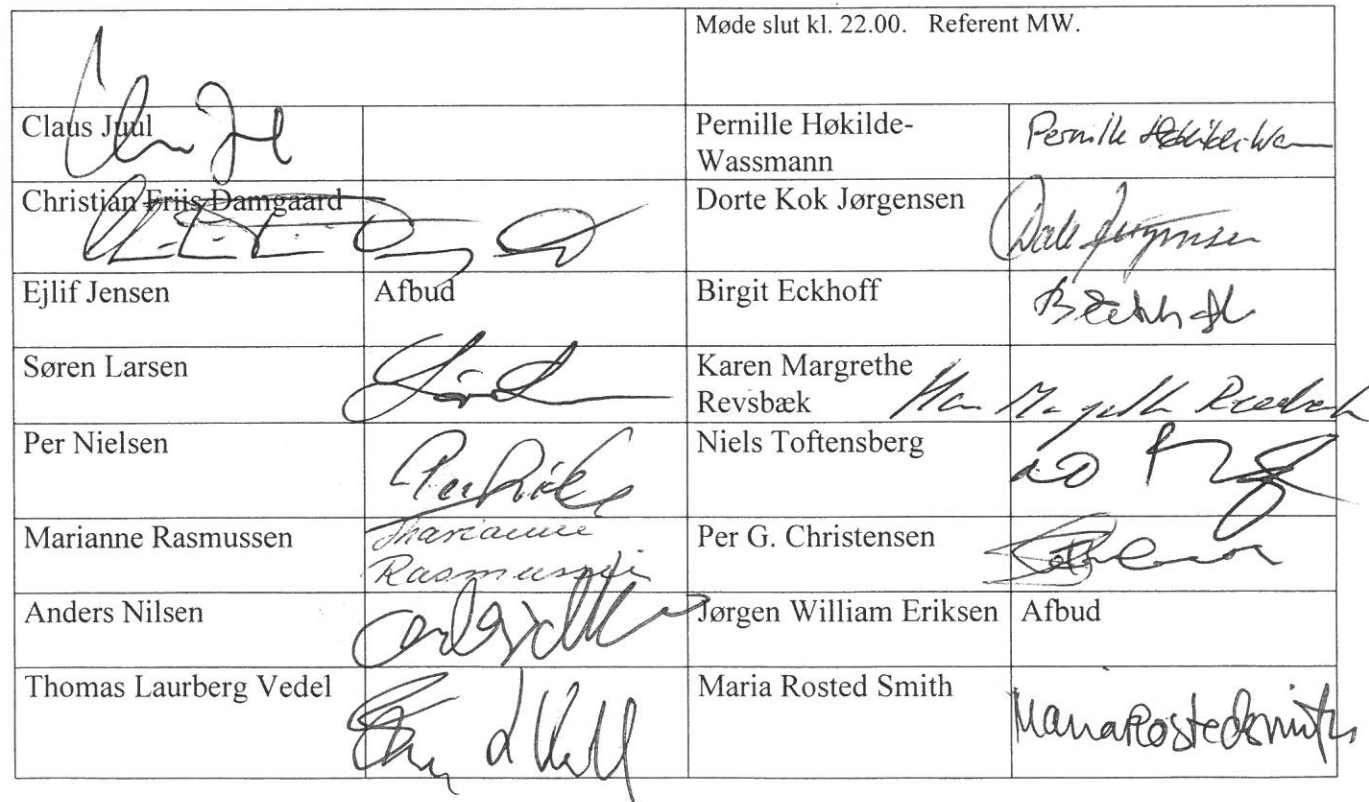 Møde slut kl. 22.00. Referent MW.
Claus Juul
Pernille Høkilde-
Wassmann
Pernille
Christian Friis Damgaard
Dorte Kok Jørgensen
Ejlif Jensen
Afbud
Birgit Eckhoff
Søren Larsen
Karen Margrethe
Revsbæk
Per Nielsen
Niels Toftensberg
Marianne Rasmussen
Marianne
Rasmussen
Per G. Christensen
Anders Nilsen
Jørgen William Eriksen
Afbud
Thomas Laurberg Vedel
Maria Rosted Smith
Maria Rosted Smith